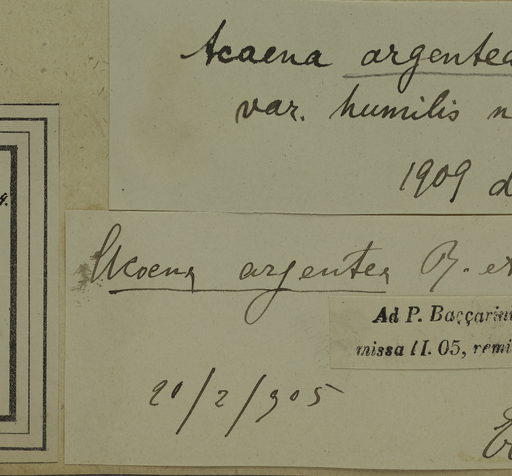 Acaena argentea
var. humilis n
1909 d
Acaena argentea R. et
Ad P. Baccarini
missa II. 05, remi
20/2/905